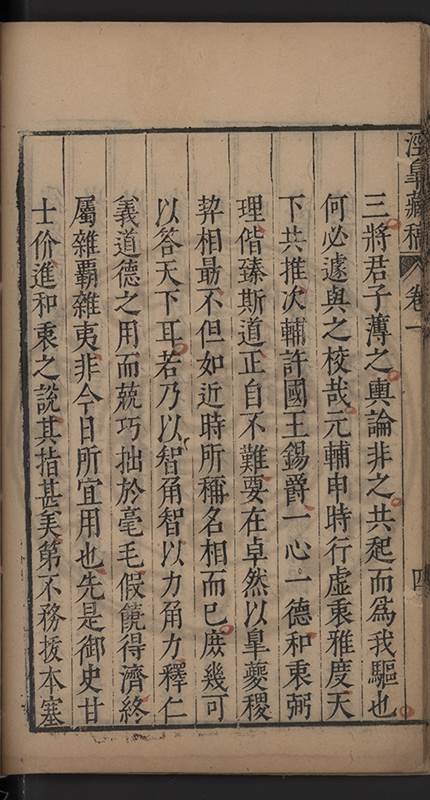 涇皐藏稿 卷一 四
三將君子薄之輿論非之共起而爲我驅也
何必遽與之校哉元輔申時行虛秉雅度天
下共推次輔許國王錫爵一心一德和衷弼
理偕臻斯道正自不難要在卓然以臯夔稷
契相最不但如近時所稱名相而已庶幾可
以答天下耳若乃以智角智以力角力釋仁
義道德之用而兢巧拙於毫毛假饒得濟終
屬雜霸雜夷非今日所宜用也先是御史甘
士价進和衷之說其指甚美第不務拔本塞